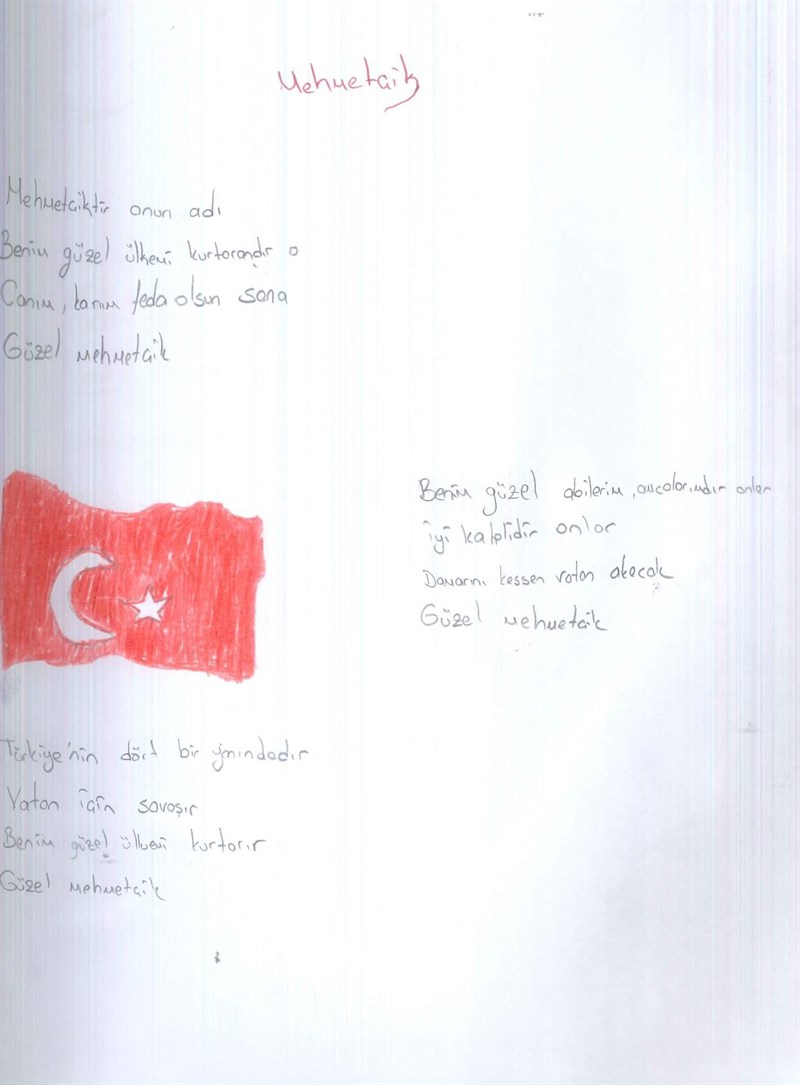 Mehmetcik
Mehmetciktir onun adı
Benim güzel ülkemi kurtarandır o
Canım, kanım feda olsun sana
Güzel mehmetcik
Benim güzel abilerim, amcalarımdır onlar
iyi kalplidir onlar
Damarını kessen vatan akacak
Güzel mehmetcik
Türkiye'nin dört bir yanındadır
Vatan için savaşır
Benim güzel ülkemi kurtarır
Güzel mehmetcik